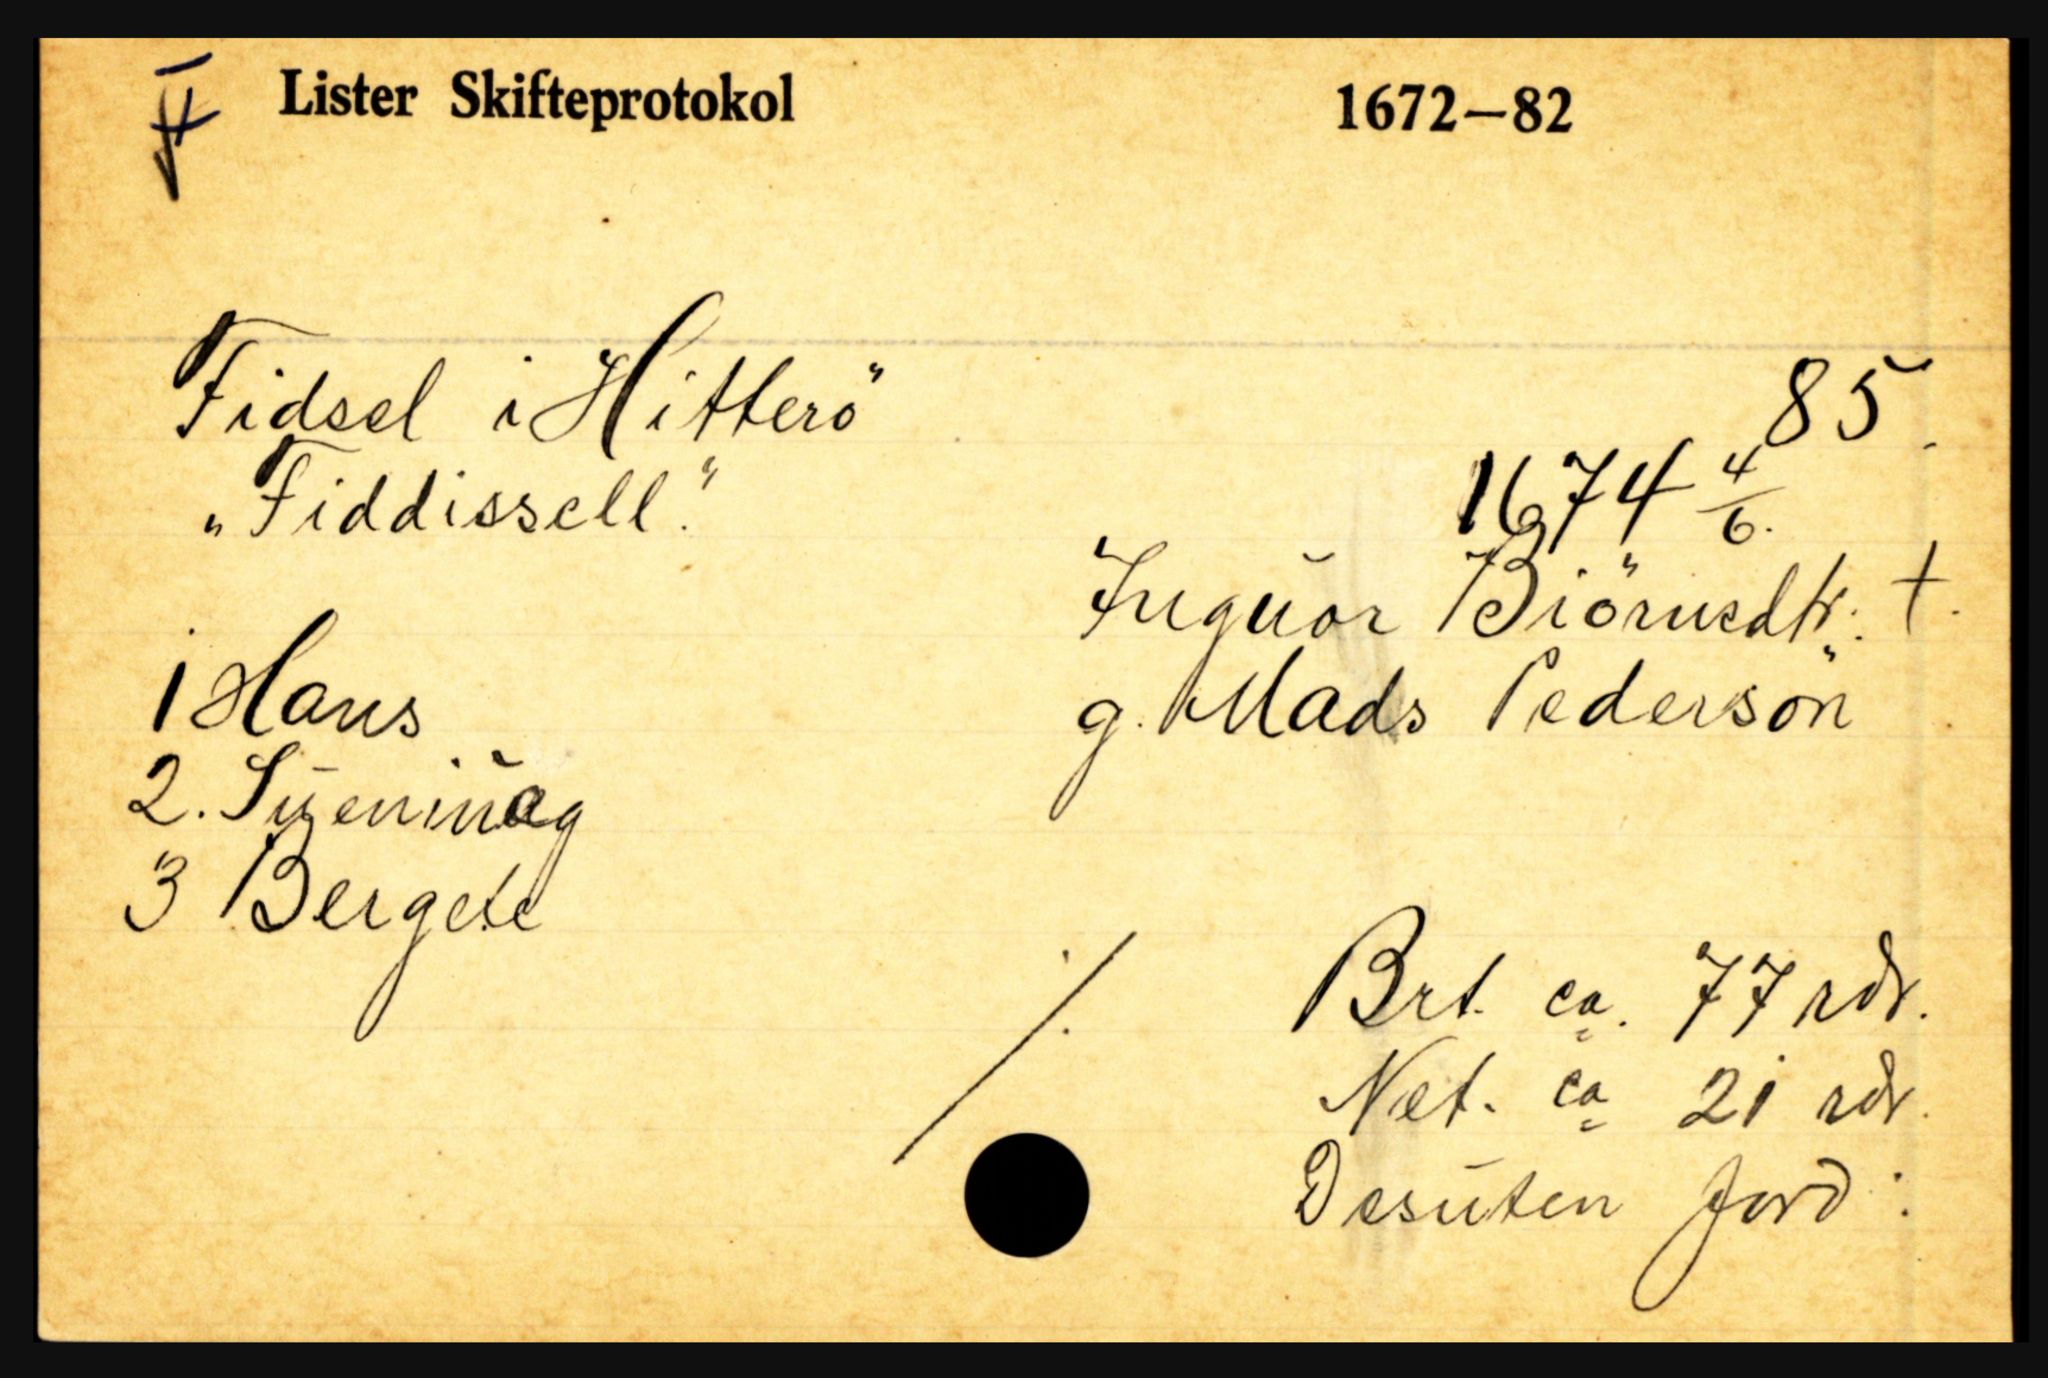 F Lister Skifteprotokol 1672—82
Fidsel i Hitterö
85.
„Fiddissell."
1674 4/6.
Inguor Biörnsdtr. †.
1 Hans
g. Mads Pedersön
2.
3 Bergete
Brt. ca. 77 rdr.
Net. ca 21 rdr.
Desuten Jord: